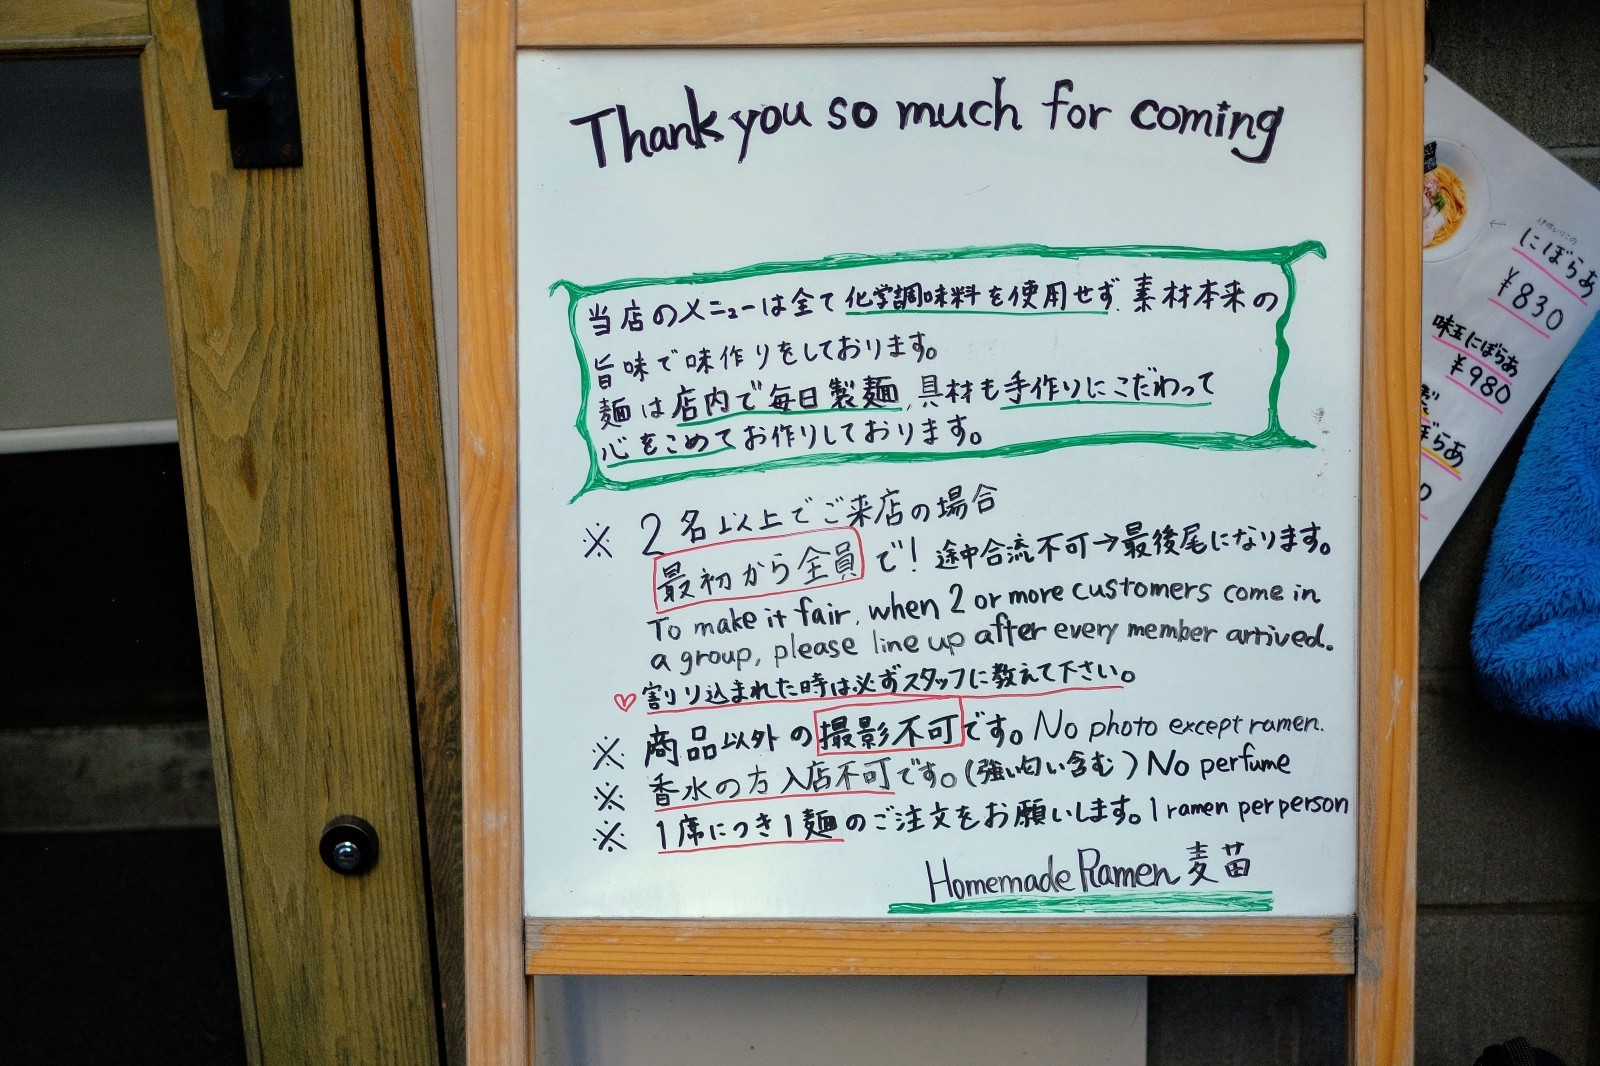 Thank you so much for coming
当店のメニューは全て化学調味料を使用せず、素材本来の
旨味で味作りをしております。
麺は店内で毎日製麺、具材も手作りにこだわって
心をこめてお作りしております。
※ 2名以上でご来店の場合
最初から全員で! 途中合流不可→最後尾になります。
To make it fair, when 2 or more customers come in
a group, please line up after every member arrived.
♡割り込まれた時は必ずスタッフに教えて下さい。
※ 商品以外の撮影不可です。No photo except ramen.
※ 香水の方入店不可です。(強い匂い含む) No perfume
※ 1席につき1麺のご注文をお願いします。1 ramen per person
Homemade Ramen 麦苗
にぼらあ
¥830
味玉にぼらあ
¥980
ぼらあ